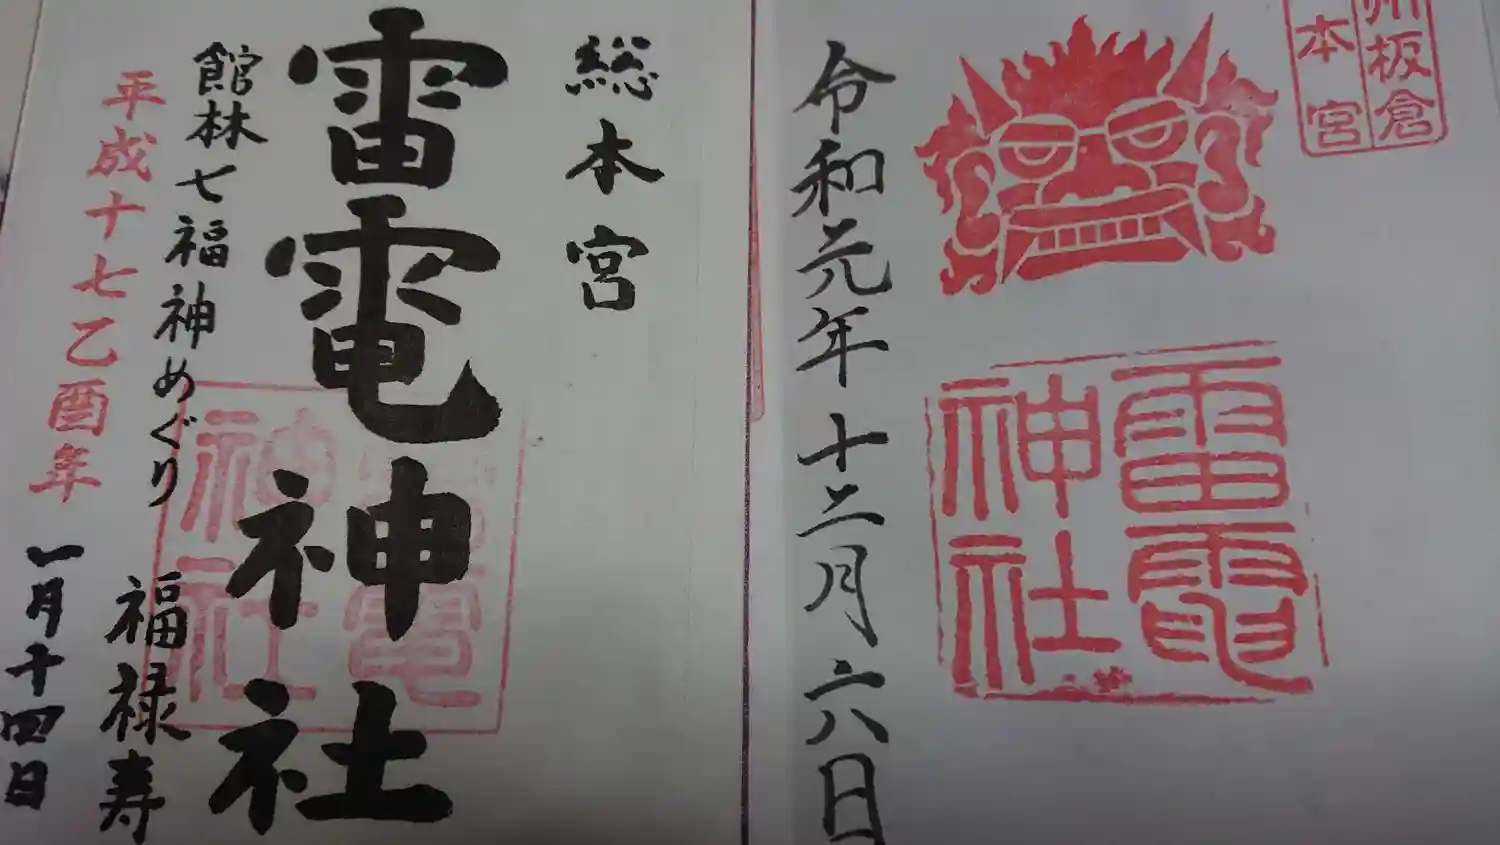 州板倉
本宮
雷電
神社
令和元年十二月六日
総本宮
雷電神社
雷電
神社
館林七福神めぐり
福禄寿
平成十七乙酉年
一月十四日